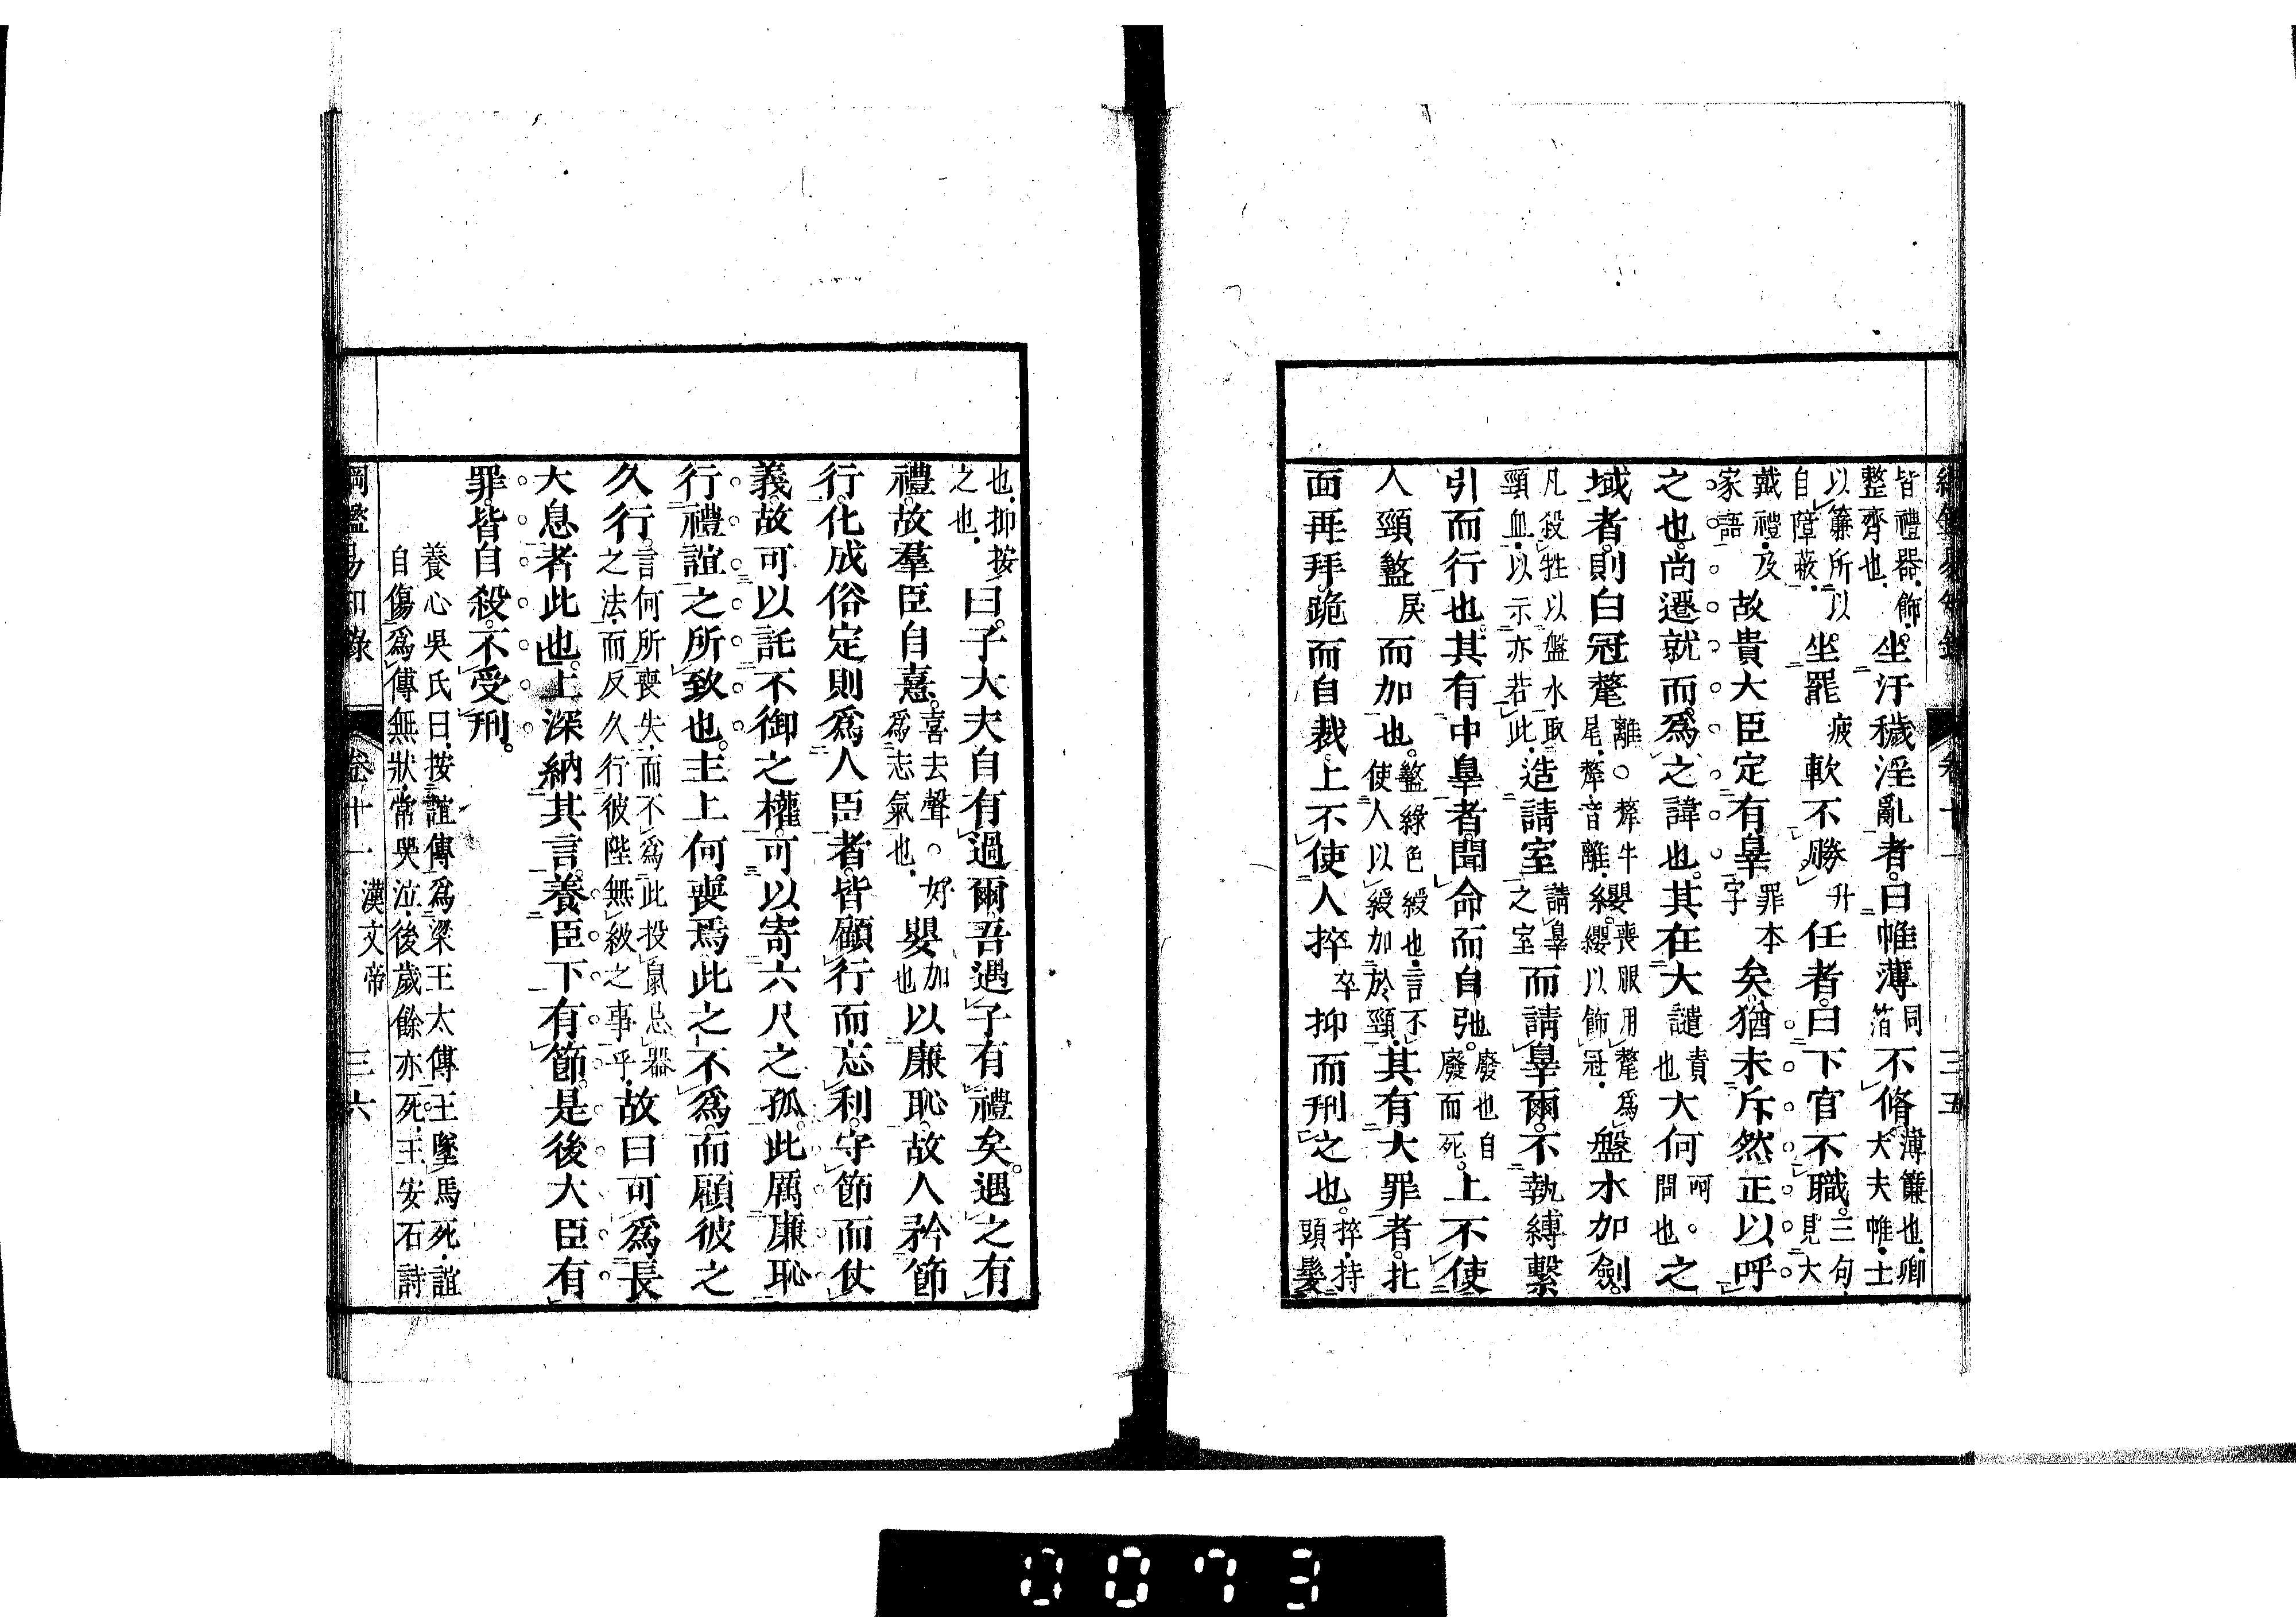 綱鑑易知錄 卷十一 三五
皆禮器飾整齊也坐汙穢淫亂者曰帷薄同箔不脩薄簾也卿大夫帷士
以簾所以自障蔽坐罷疲軟不勝升任者曰下官不職三句見大
戴禮及家語故貴大臣定有辠罪本字矣猶未斥然正以呼
之也尚遷就而爲之諱也其在大譴責也大何呵問也之
域者則白冠氂離○犛牛尾犛音離纓喪服用氂爲纓以飾冠盤水加劍
凡殺牲以盤水取頸血以示亦若此造請室請辠之室而請辠爾不執縛繫
引而行也其有中辠者聞命而自弛廢也自廢而死上不使
人頸盭戾而加也盭綠色綬也言不使人以綬加於頸其有大罪者北
面再拜跪而自裁上不使人捽卒抑而刑之也捽持頭髮
也抑按之也曰子大夫自有過爾吾遇子有禮矣遇之有
禮故羣臣自憙喜去聲○好爲志氣也嬰加也以廉恥故人矜節
行化成俗定則爲人臣者皆顧行而忘利守節而仗
義故可以託不御之權可以寄六尺之孤此厲廉恥
行禮誼之所致也主上何喪焉此之不爲而顧彼之
久行言何所喪失而不爲此投鼠忌器之法而反久行彼陛無級之事乎故曰可爲長
大息者此也上深納其言養臣下有節是後大臣有
罪皆自殺不受刑
養心吳氏曰按誼傳爲梁王太傅王墜馬死誼
自傷爲傅無狀常哭泣後歲餘亦死王安石詩
綱鑑易知錄 卷十一 漢文帝 三六
0073